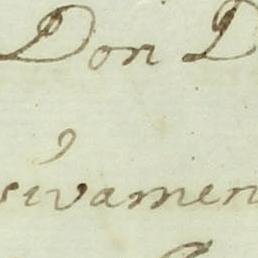 Don D
sivamen